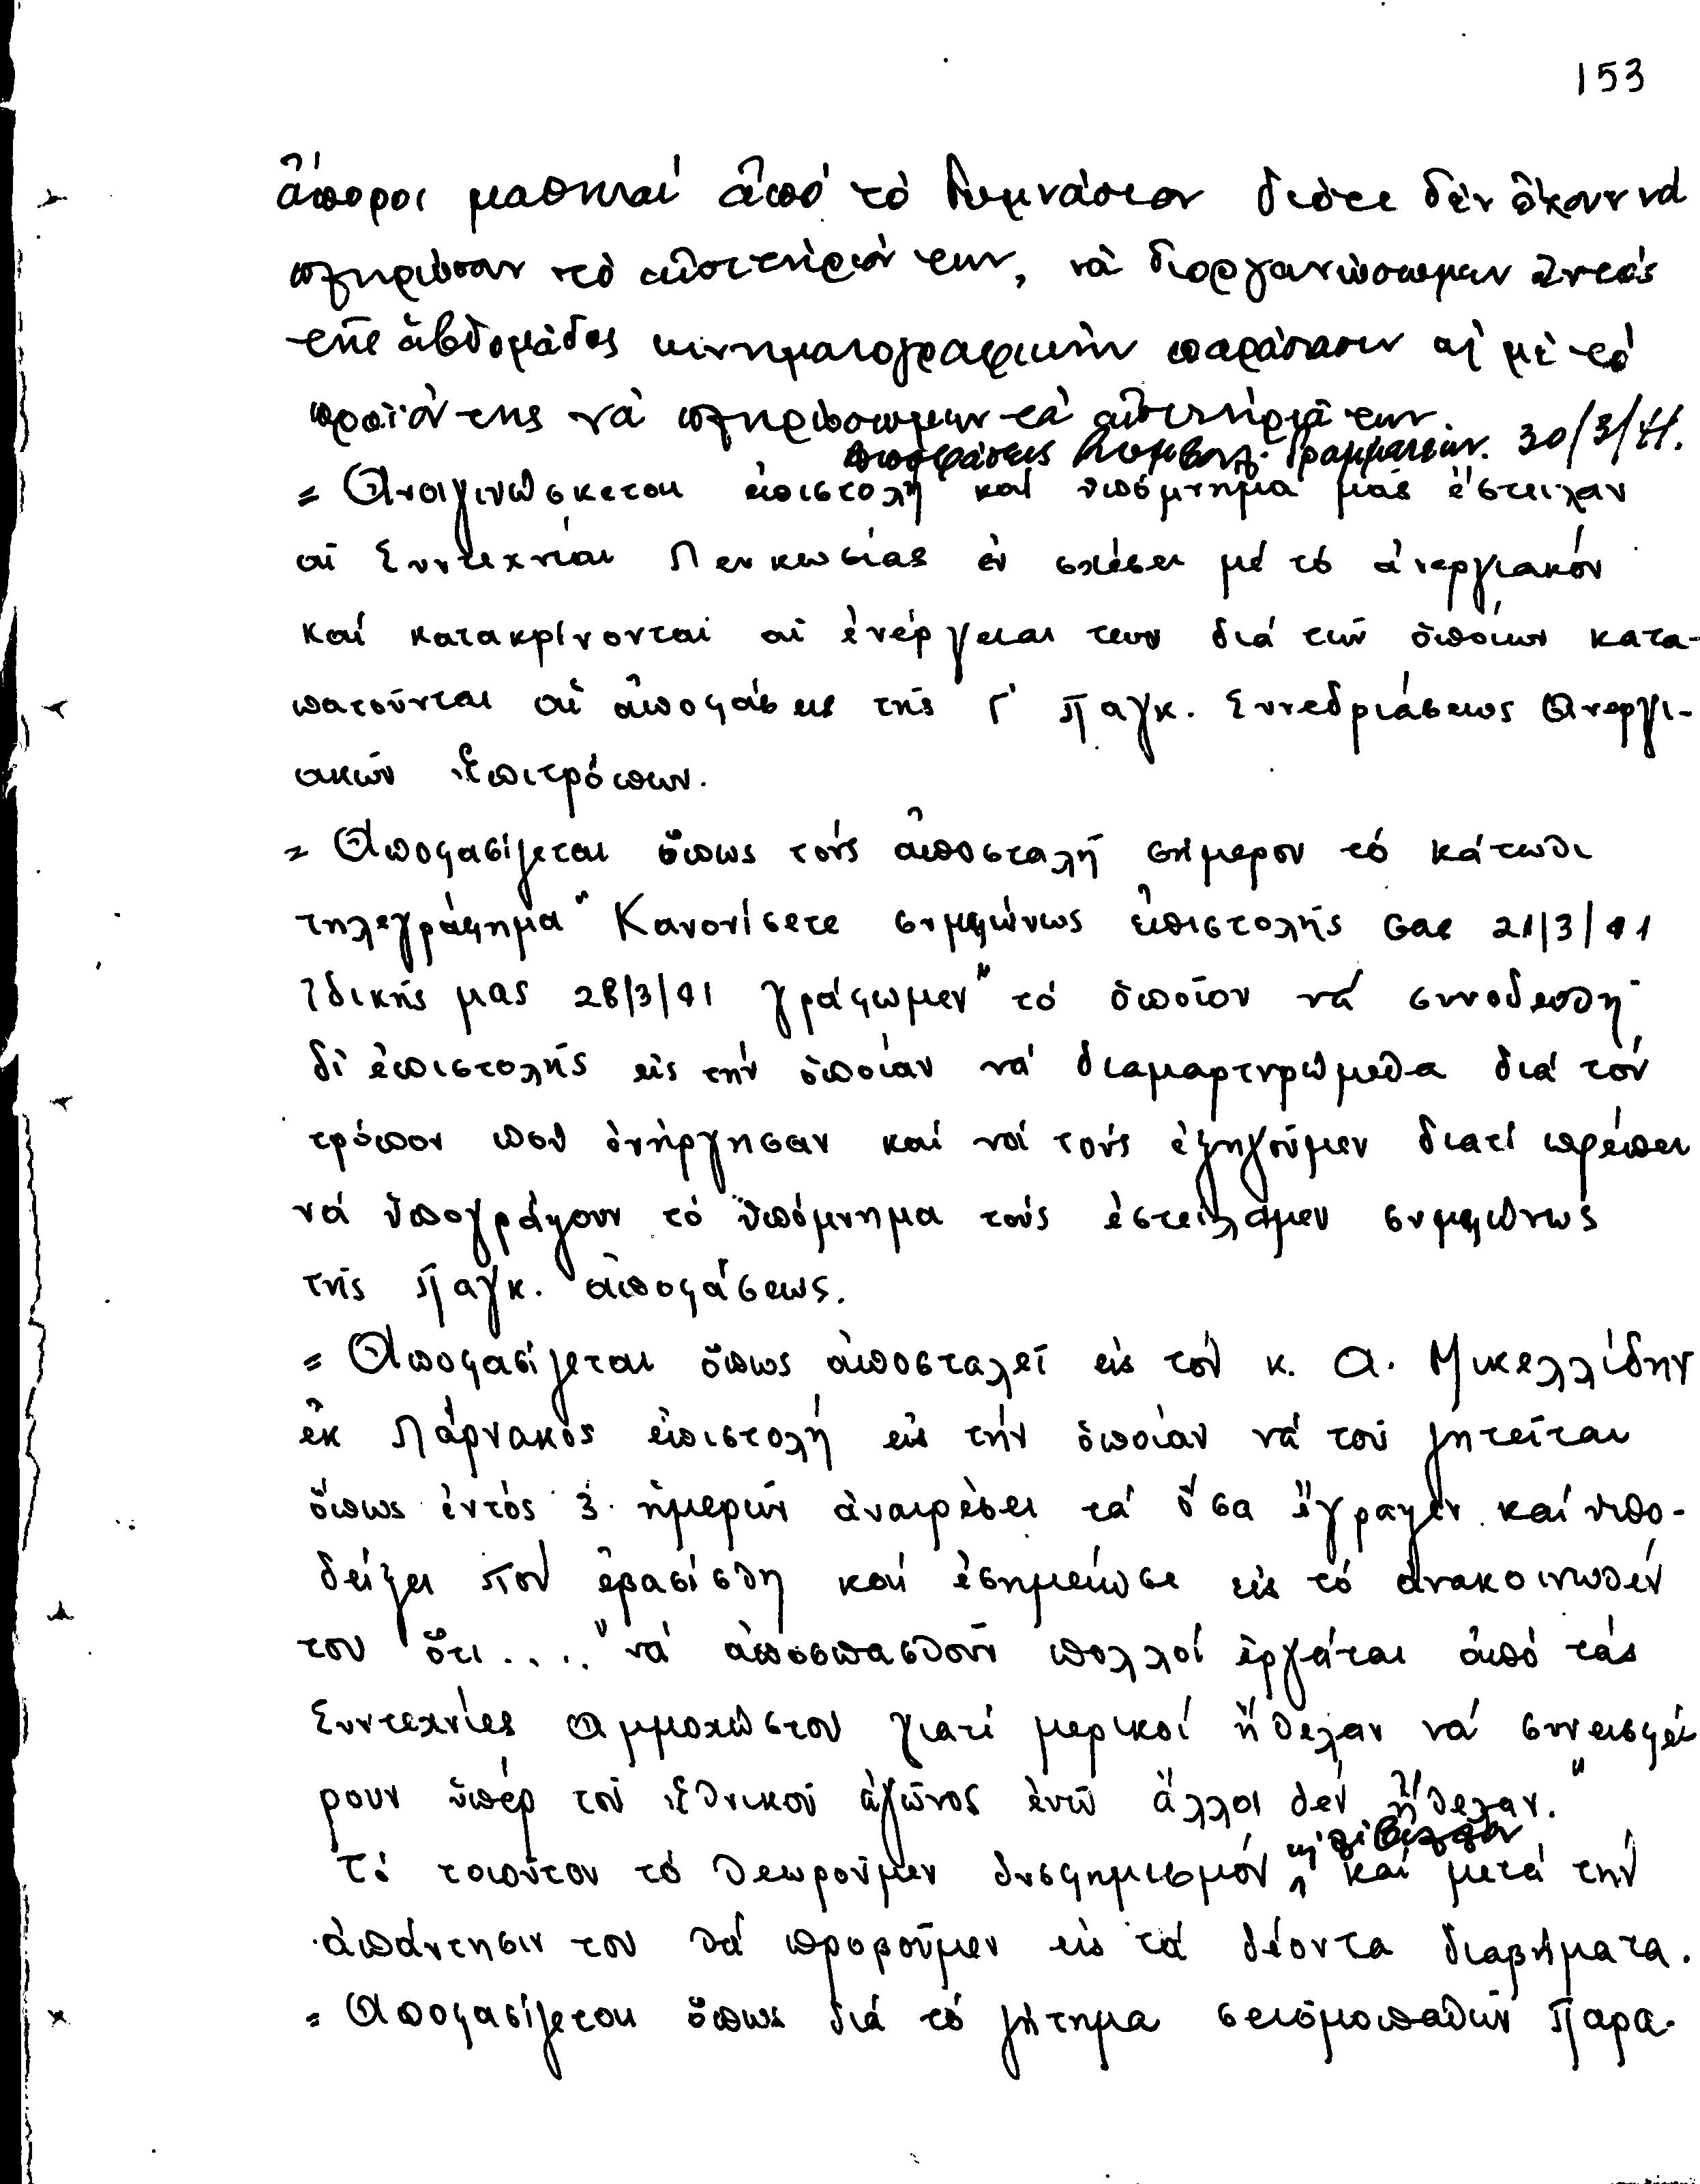 153
ἄποροι μαθηταί ἀπό τό Γυμνάσιον διότι δέν ἔχουν νά
πληρώσουν τό εἰσιτήριόν των, νά διοργανώσωμεν ἐντός
τῆς ἑβδομάδος κινηματογραφικήν παράστασιν κ μέ τό
προϊόν της νά πληρώσωμεν τά εἰσιτήριά των.
Ἀποφάσεις Συμβουλ. Γραμματέων. 30/3/41.
= Ἀναγινώσκεται ἐπιστολή καί ὑπόμνημα μᾶς ἔστειλαν
αἱ Συντεχνίαι Λευκωσίας ἐν σχέσει μέ τό ἀνεργιακόν
καί κατακρίνονται αἱ ἐνέργειαι των διά τῶν ὁποίων κατα-
πατοῦνται αἱ ἀποφάσεις τῆς Γ' Παγκ. Συνεδριάσεως Ἀνεργι-
ακῶν Ἐπιτρόπων.
= Ἀποφασίζεται ὅπως τούς ἀποσταλῆ σήμερον τό κάτωθι
τηλεγράφημα "Κανονίσετε συμφώνως ἐπιστολῆς σας 21/3/41
ἰδικῆς μας 28/3/41 γράφωμεν" τό ὁποῖον νά συνοδευθῆ
δι ἐπιστολῆς εἰς τήν ὁποίαν νά διαμαρτυρώμεθα διά τόν
τρόπον πού ἐνήργησαν καί νά τούς ἐξηγοῦμεν διατί πρέπει
νά ὑπογράψουν τό ὑπόμνημα τούς ἐστείλαμεν συμφώνως
τῆς Παγκ. ἀποφάσεως.
= Ἀποφασίζεται ὅπως ἀποσταλεῖ εἰς τόν κ. Α. Μικελλίδην
ἐκ Λάρνακος ἐπιστολή εἰς τήν ὁποίαν νά τοῦ ζητεῖται
ὅπως ἐντός 3 ἡμερῶν ἀναιρέσει τά ὅσα ἔγραψεν καί ὑπο-
δείξει ποῦ ἐβασίσθη καί ἐσημείωσε εἰς τό ἀνακοινωθέν
του ὅτι...." νά ἀποσπασθοῦν πολλοί ἐργάται ἀπό τάς
Συντεχνίες Ἀμμοχώστου γιατί μερικοί ἤθελαν νά συνεισφέ
ρουν ὑπέρ τοῦ Ἐθνικοῦ ἀγῶνος ἐνῶ ἄλλοι δέν ἤθελαν."
Τό τοιοῦτον τό θεωροῦμεν δυσφημισμόν καί μετά τήν
ἀπάντησιν του θά προβοῦμεν εἰς τά δέοντα διαβήματα.
= Ἀποφασίζεται ὅπως διά τό ζήτημα σεισμοπαθῶν Παρα-